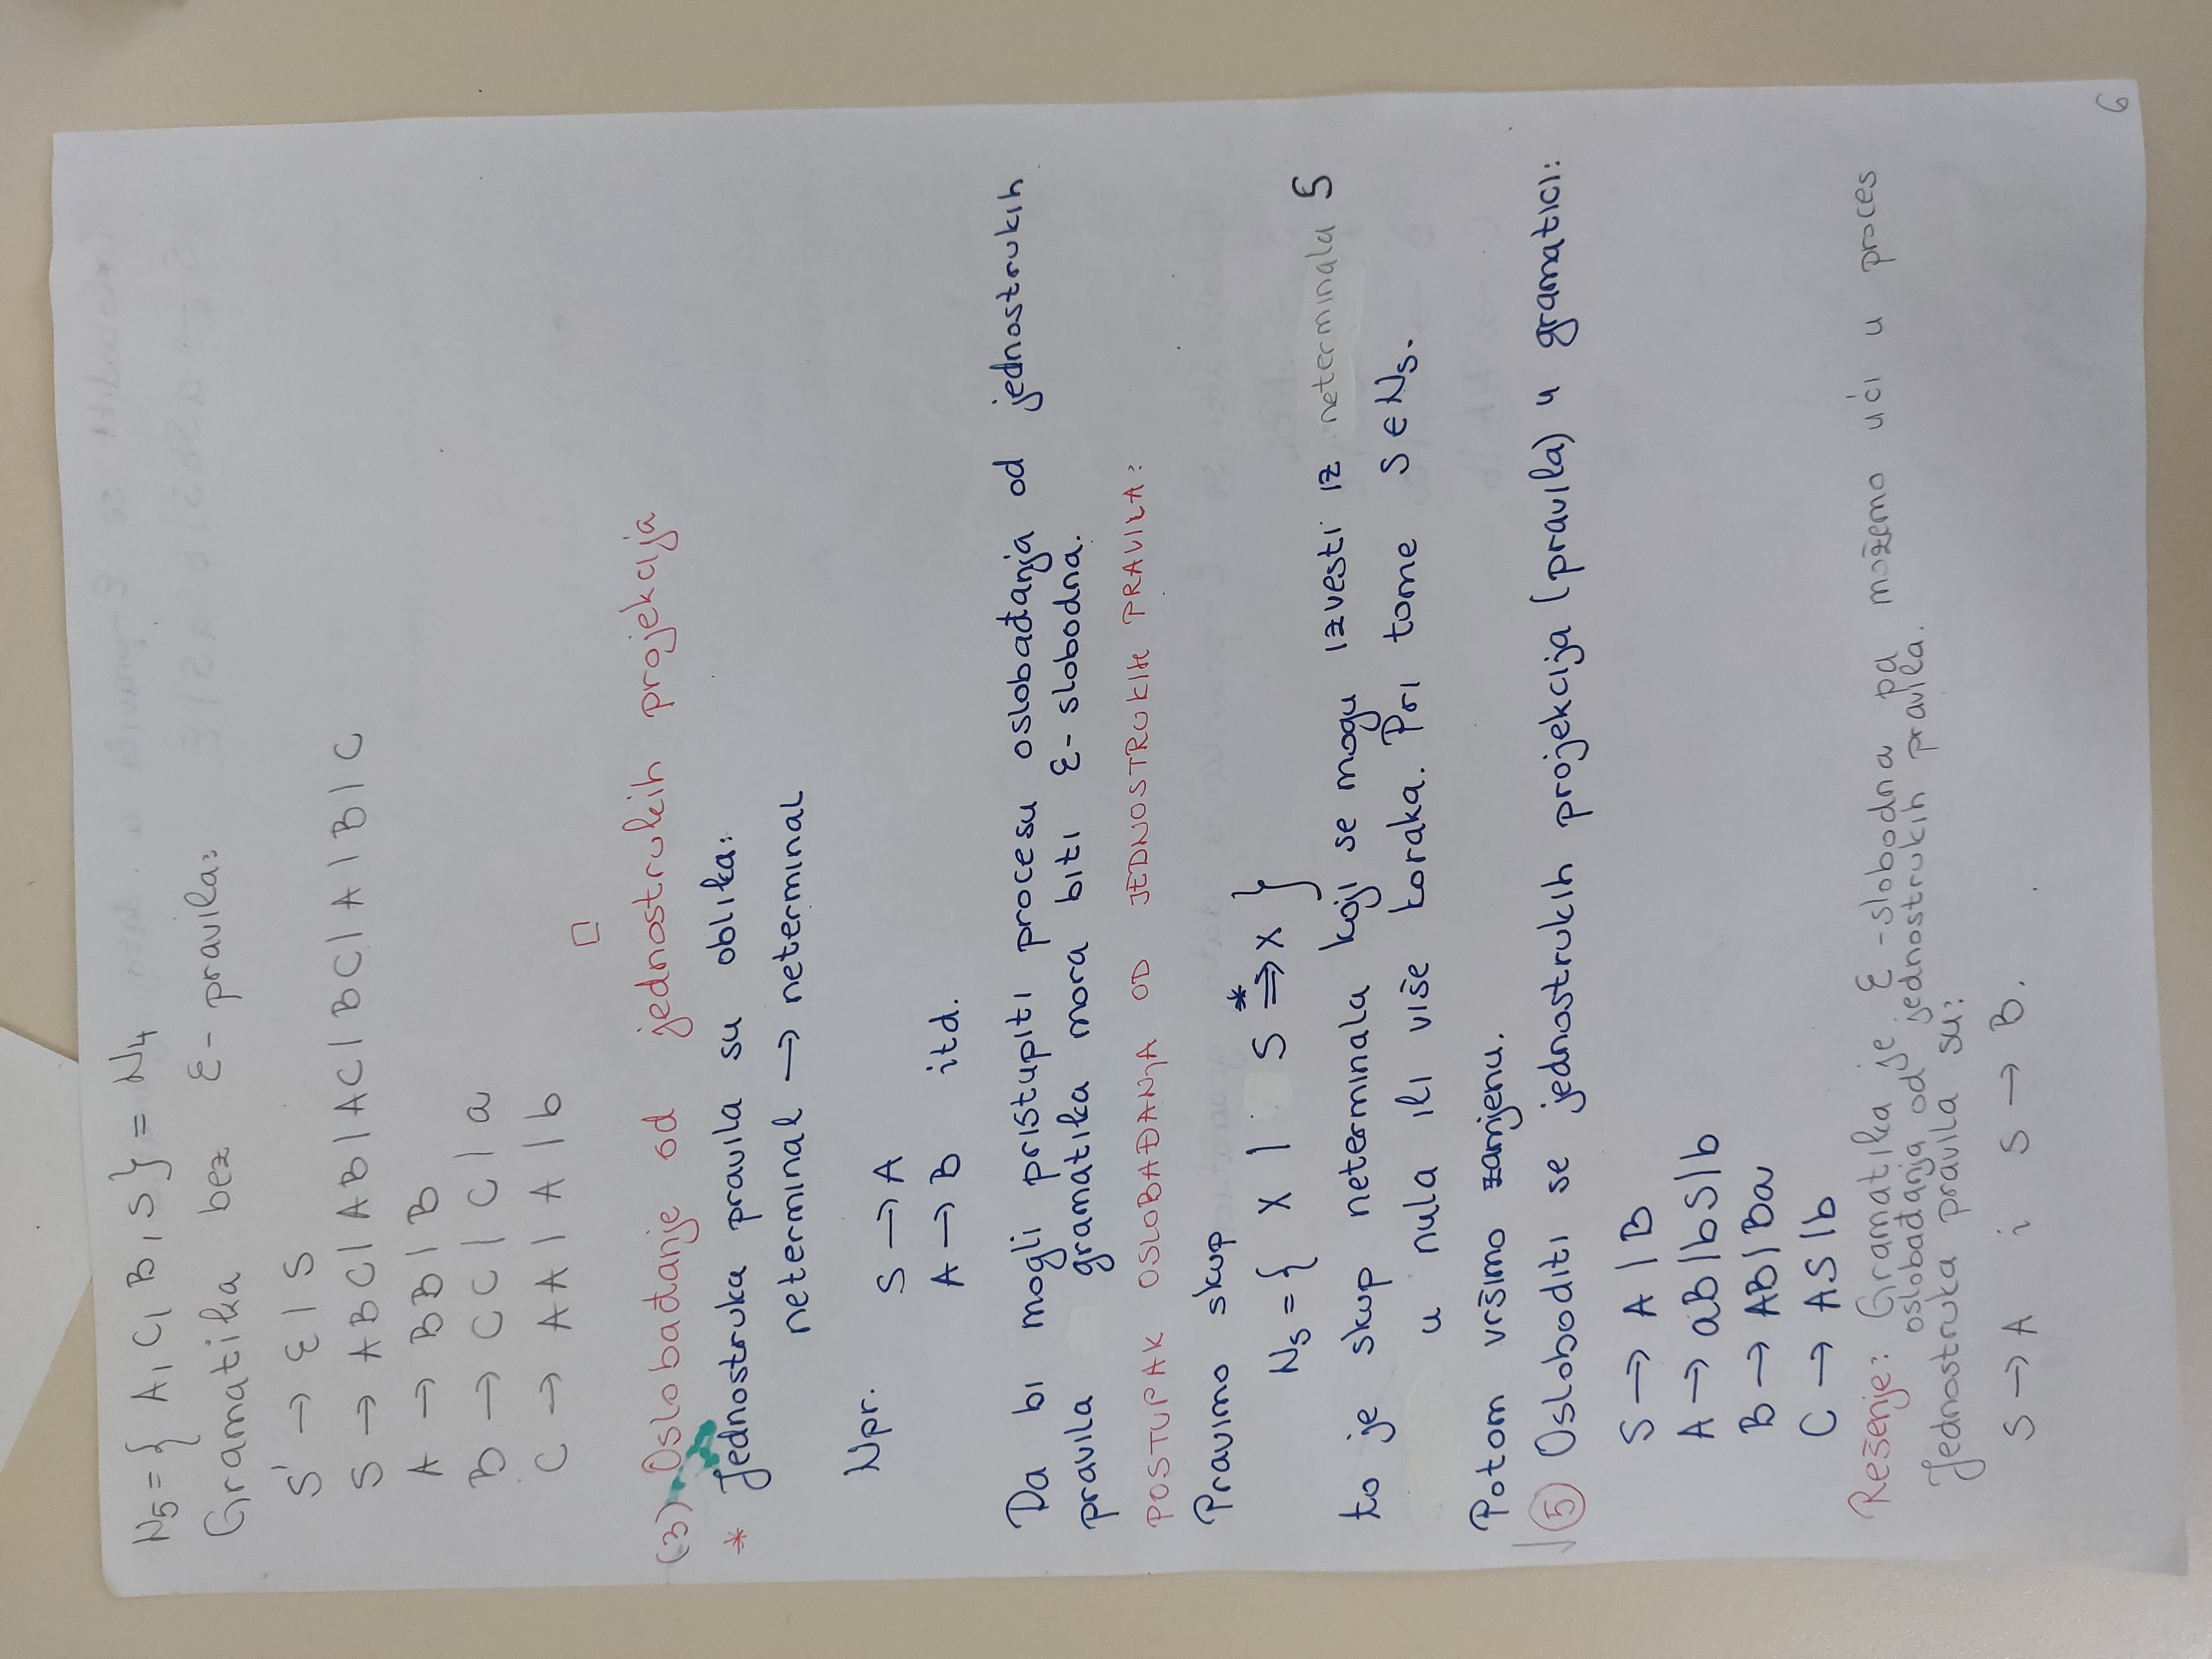 N₅ = { A, C, B, S } = N₄
Gramatika bez ε- pravila:
S' → ε | S
S → ABC | AB | AC | BC | A | B | C
A → BB | B
B → CC | C | a
C → AA | A | b
□
(3) Oslobađanje od jednostrukih projekcija
* Jednostruka pravila su oblika:
neterminal → neterminal
Npr.
S → A
A → B itd.
Da bi mogli pristupiti procesu oslobađanja od jednostrukih
pravila gramatika mora biti ε- slobodna.
POSTUPAK OSLOBAĐANJA OD JEDNOSTRUKIH PRAVILA:
Pravimo skup
N_S = { X | S ⇒* X }
to je skup neterminala koji se mogu izvesti iz neterminala S
u nula ili više koraka. Pri tome S ∈ N_S.
Potom vršimo zamjenu.
↓ ⑤ Osloboditi se jednostrukih projekcija (pravila) u gramatici:
S → A | B
A → aB | bS | b
B → AB | Ba
C → AS | b
Rešenje: Gramatika je ε -slobodna pa možemo ući u proces
oslobađanja od jednostrukih pravila.
Jednostruka pravila su:
S → A i S → B.
6